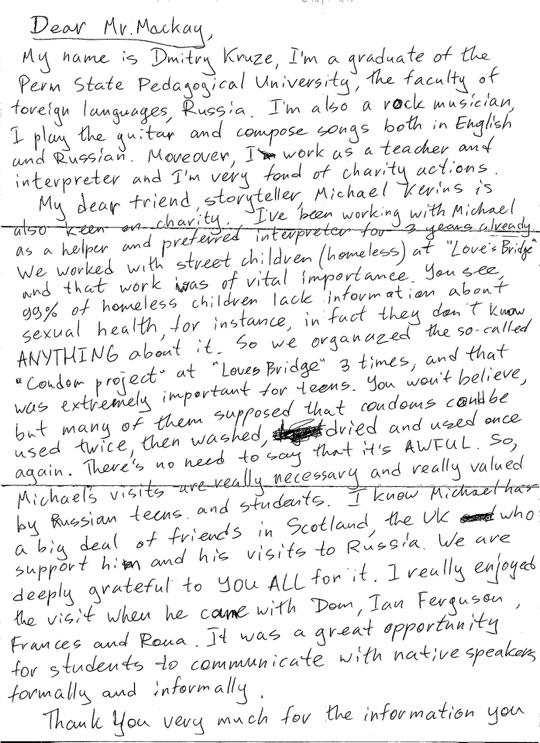 Dear Mr. Mackay,
My name is Dmitry Kruze, I'm a graduate of the
Perm State Pedagogical University, the faculty of
foreign languages, Russia. I'm also a rock musician,
I play the guitar and compose songs both in English
and Russian. Moreover, I work as a teacher and
interpreter and I'm very fond of charity actions.
My dear friend, storyteller, Michael Kerins is
also keen on charity. I've been working with Michael
as a helper and preferred interpreter for 3 years already.
We worked with street children (homeless) at "Love's Bridge"
and that work was of vital importance. You see,
99% of homeless children lack information about
sexual health, for instance, in fact they don't know
ANYTHING about it. So we organazed the so-called
"Condom project" at "Loves Bridge" 3 times, and that
was extremely important for teens. You won't believe,
but many of them supposed that condoms could be
used twice, then washed, dried and used once
again. There's no need to say that it's AWFUL. So,
Michael's visits are really necessary and really valued
by Russian teens and students. I know Michael has
a big deal of friends in Scotland, the UK who
support him and his visits to Russia. We are
deeply grateful to YOU ALL for it. I really enjoyed
the visit when he came with Dom, Ian Ferguson,
Frances and Rona. It was a great opportunity
for students to communicate with native speakers
formally and informally.
Thank You very much for the information you